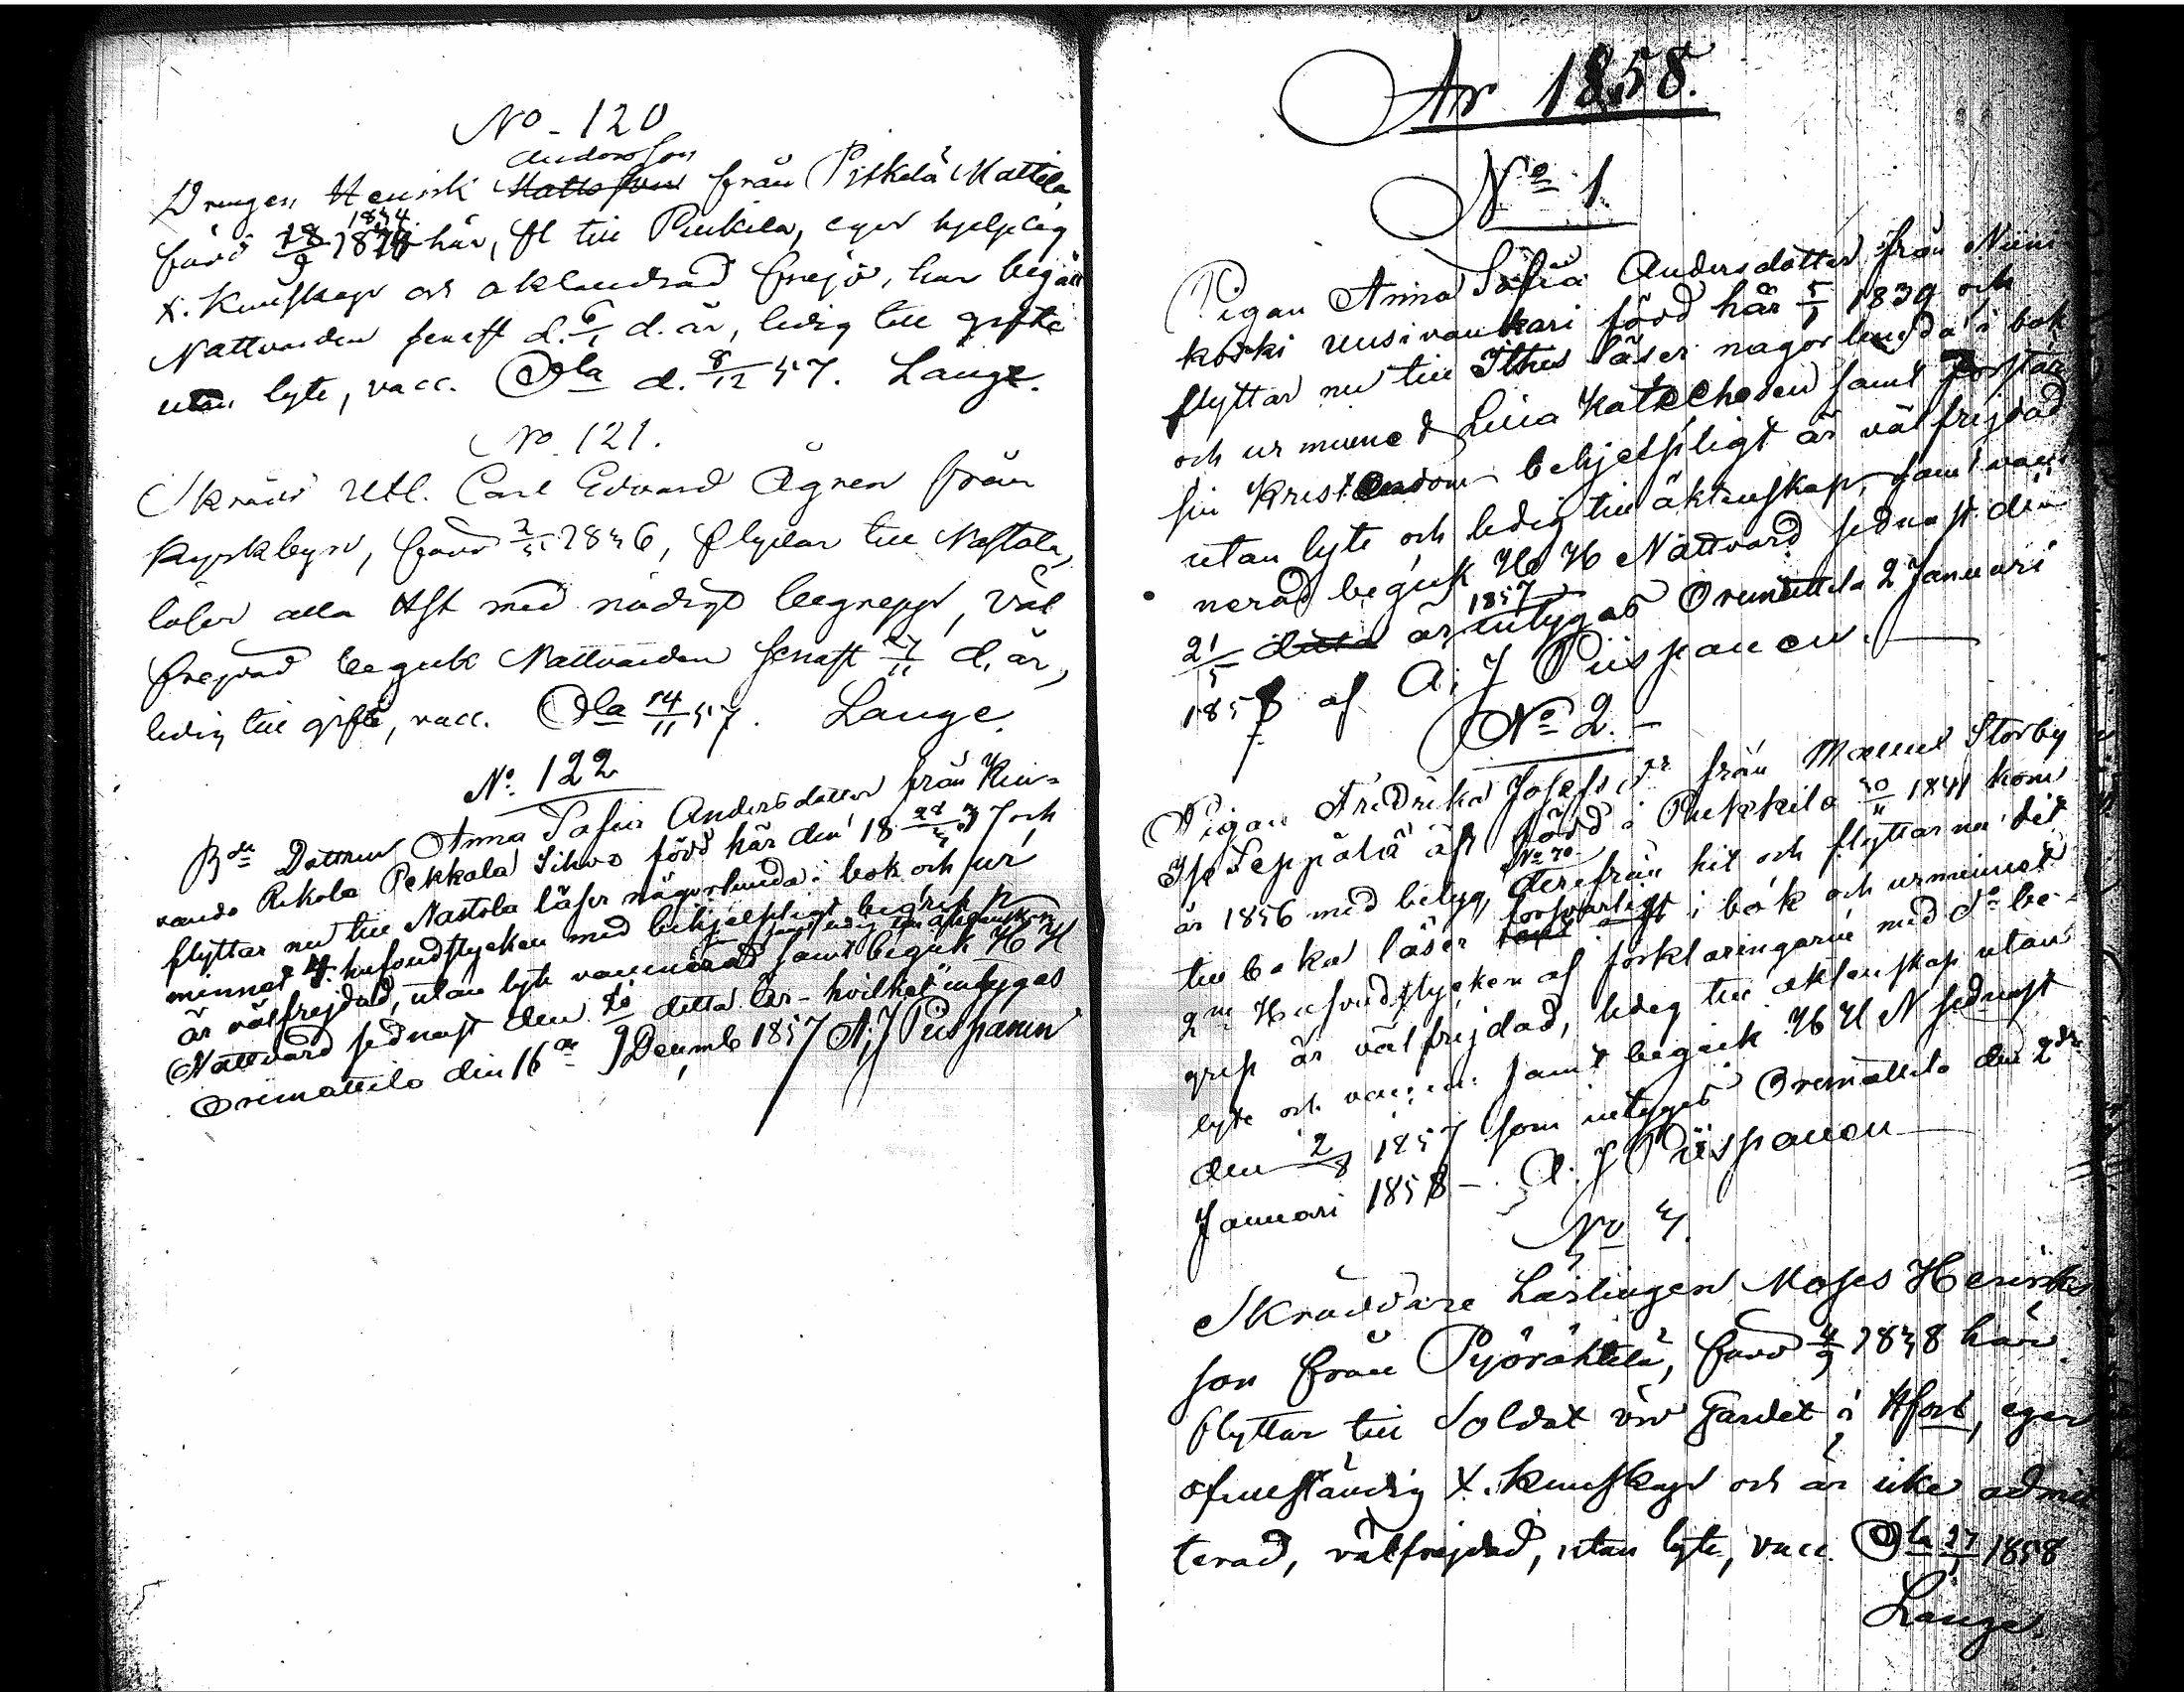 No 120
Andersson
Drengen Henrik Mattsson från Pitkelä Mattila
1834
född 18/9 1828 här, fl till Pukkila, eger hjelplig
X. kunskap och oklandrad frejd, har begått
Nattvarden senast d. 6/1 d. år, ledig till gifte
utan lyte, vacc. Ola d. 8/12 57. Lange.
No 121.
Skrädd Utl. Carl Edvard Ågren från
Kyrkbyn, född 1836, flyttar till Nastola,
läser alla Hst med nödigt begrepp, väl
frejdad begick Nattvarden senast 27/11 d. år,
ledig till gifte, vacc. Ola 14/11 57. Lange.
No 122
Bde Dottren Anna Sofia Andersdotter från Kui-
vando Rekola Pekkala Sihvo född här den 18 37 och
flyttar nu till Nastola läser någorlunda i bok och ur
minnet 4 hufvudstycken med behjelpligt begrepp
samt ledig till äktenskap
är välfrejdad, utan lyte vaccinerad samt begick H H
Nattvard sednast den detta år - hvilket intygas
Orimattila den 16de Decemb 1857 A. J Piispanen
År 1858.
No 1
Pigan Anna Sofia Andersdotter från Niini
koski Uusivankari född här 5/1 1839 och
flyttar nu till Ithis läser någorlunda i bok
och ur minnet Lilla Katechesen samt förstår
sin Kristendom behjelpligt är välfrejdad
utan lyte och ledig till äktenskap, samt vacci
nerad begick H H Nattvard sednast den
1857
21/5 detta år intygas Orimattila 2 Januari
1858 af A. J Piispanen.
No 2.
Pigan Fredrika Josefsdr från Mallus Storby
Iso Seppälä äfv född i Pukkila 30/11 1841 kom
No 70
år 1856 med betyg, derifrån hit och flyttar nu dit
försvarligt
tillbaka läser i bok och ur minnet
2ne Hufvudstycken af förklaringarne med do be-
grep är välfrejdad, ledig till äktenskap utan
lyte och vaccin: samt begick H H N sednast
den 2/8 1857 som intygas Orimattila den 2dra
Januari 1858 - A. J Piispanen
No 3.
Skräddare Lärlingen Moses Henriks
son från Pyörähtälä, född 4/9 1838 här
flyttar till Soldat vid Gardet i Hfors, eger
ofullständig X. kunskap och är icke admit
terad, välfrejdad, utan lyte, vacc. Ola 27/1 1858
Lange.